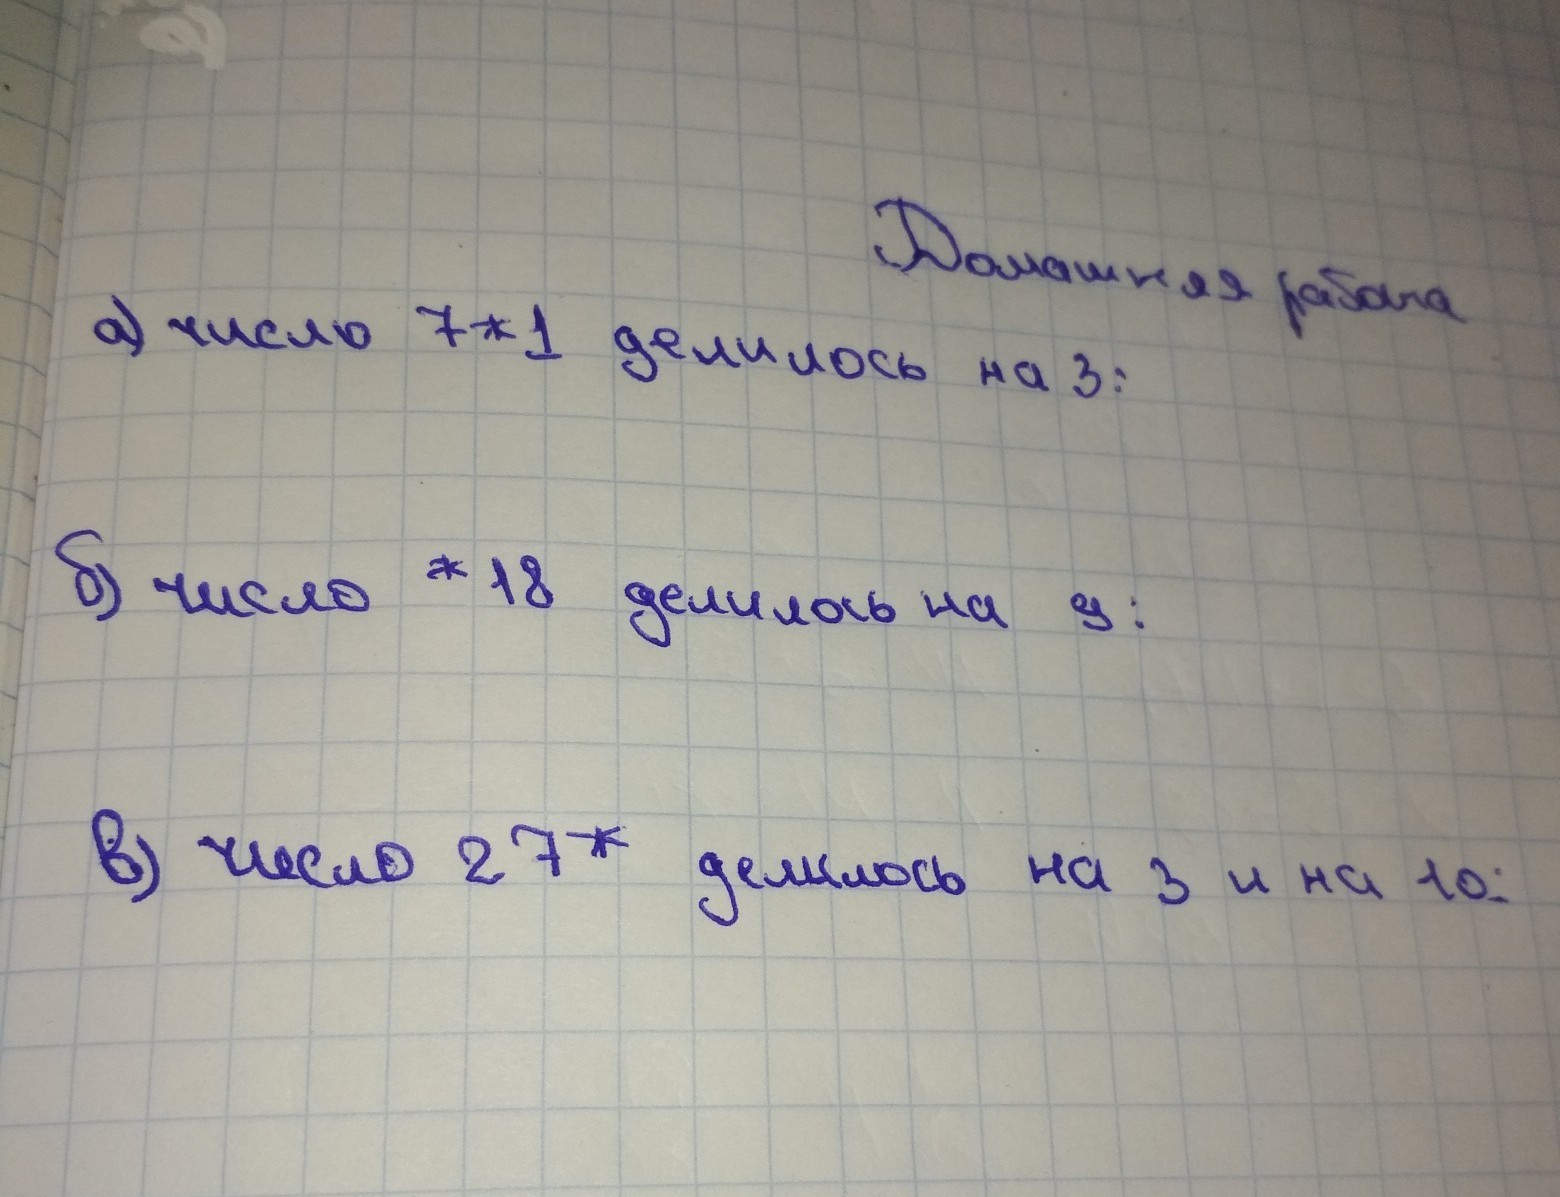 Домашняя работа
а) число 7*1 делилось на 3:
б) число *18 делилось на 9:
в) число 27* делилось на 3 и на 10: